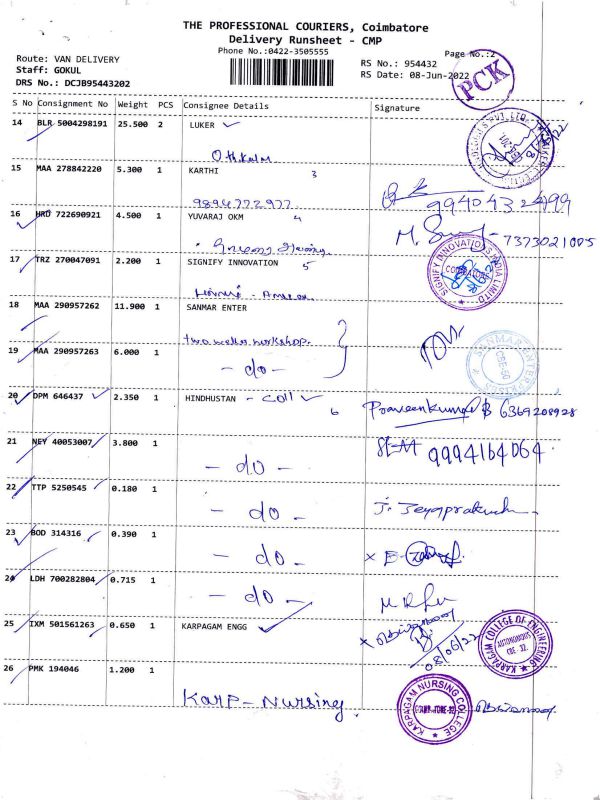 THE PROFESSIONAL COURIERS, Coimbatore
Delivery Runsheet - CMP
Phone No.:0422-3505555
Page No.:2
Route: VAN DELIVERY
Staff: GOKUL
DRS No.: DCJB95443202
RS No.: 954432
RS Date: 08-Jun-2022
PCK
S No Consignment No Weight PCS Consignee Details Signature
14 BLR 5004298191 25.500 2 LUKER
15 MAA 278842220 5.300 1 KARTHI 3
9894772977
9940432499
16 HRD 722690921 4.500 1 YUVARAJ OKM 4
7373021005
17 TRZ 270047091 2.200 1 SIGNIFY INNOVATION 5
SIGNIFY INNOVATIONS INDIA LIMITED
18 MAA 290957262 11.900 1 SANMAR ENTER
two wheeler workshop.
SANMAR ENTERPRISES CBE-50
19 MAA 290957263 6.000 1
- do -
20 DPM 646437 2.350 1 HINDHUSTAN - Coll 6
Praveenkumar B 6369208928
21 NEY 40053007 3.800 1
- do -
9994164064
22 TTP 5250545 0.180 1
- do -
J. Jeyaprakash
23 BOD 314316 0.390 1
- do -
24 LDH 700282804 0.715 1
- do -
25 IXM 501561263 0.650 1 KARPAGAM ENGG
08/06/22
KARPAGAM COLLEGE OF ENGINEERING AUTONOMOUS CBE-32.
26 PMK 194046 1.200 1
Karp - Nursing
KARPAGAM NURSING COLLEGE